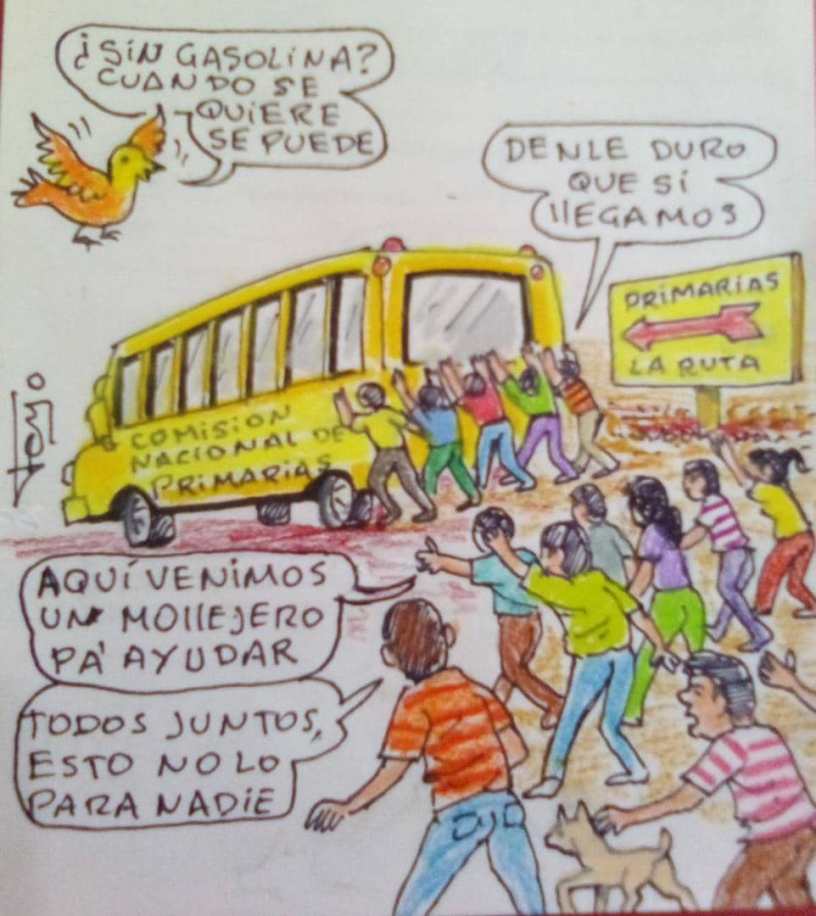 ¿SIN GASOLINA?
CUANDO SE
QUIERE
SE PUEDE
DENLE DURO
QUE SI
llEGAMOS
PRIMARIAS
LA RUTA
COMISION
NACIONAL DE
PRIMARIAS
AQUÍ VENIMOS
UN MOllEJERO
PA' AYUDAR
TODOS JUNTOS,
ESTO NO LO
PARA NADIE